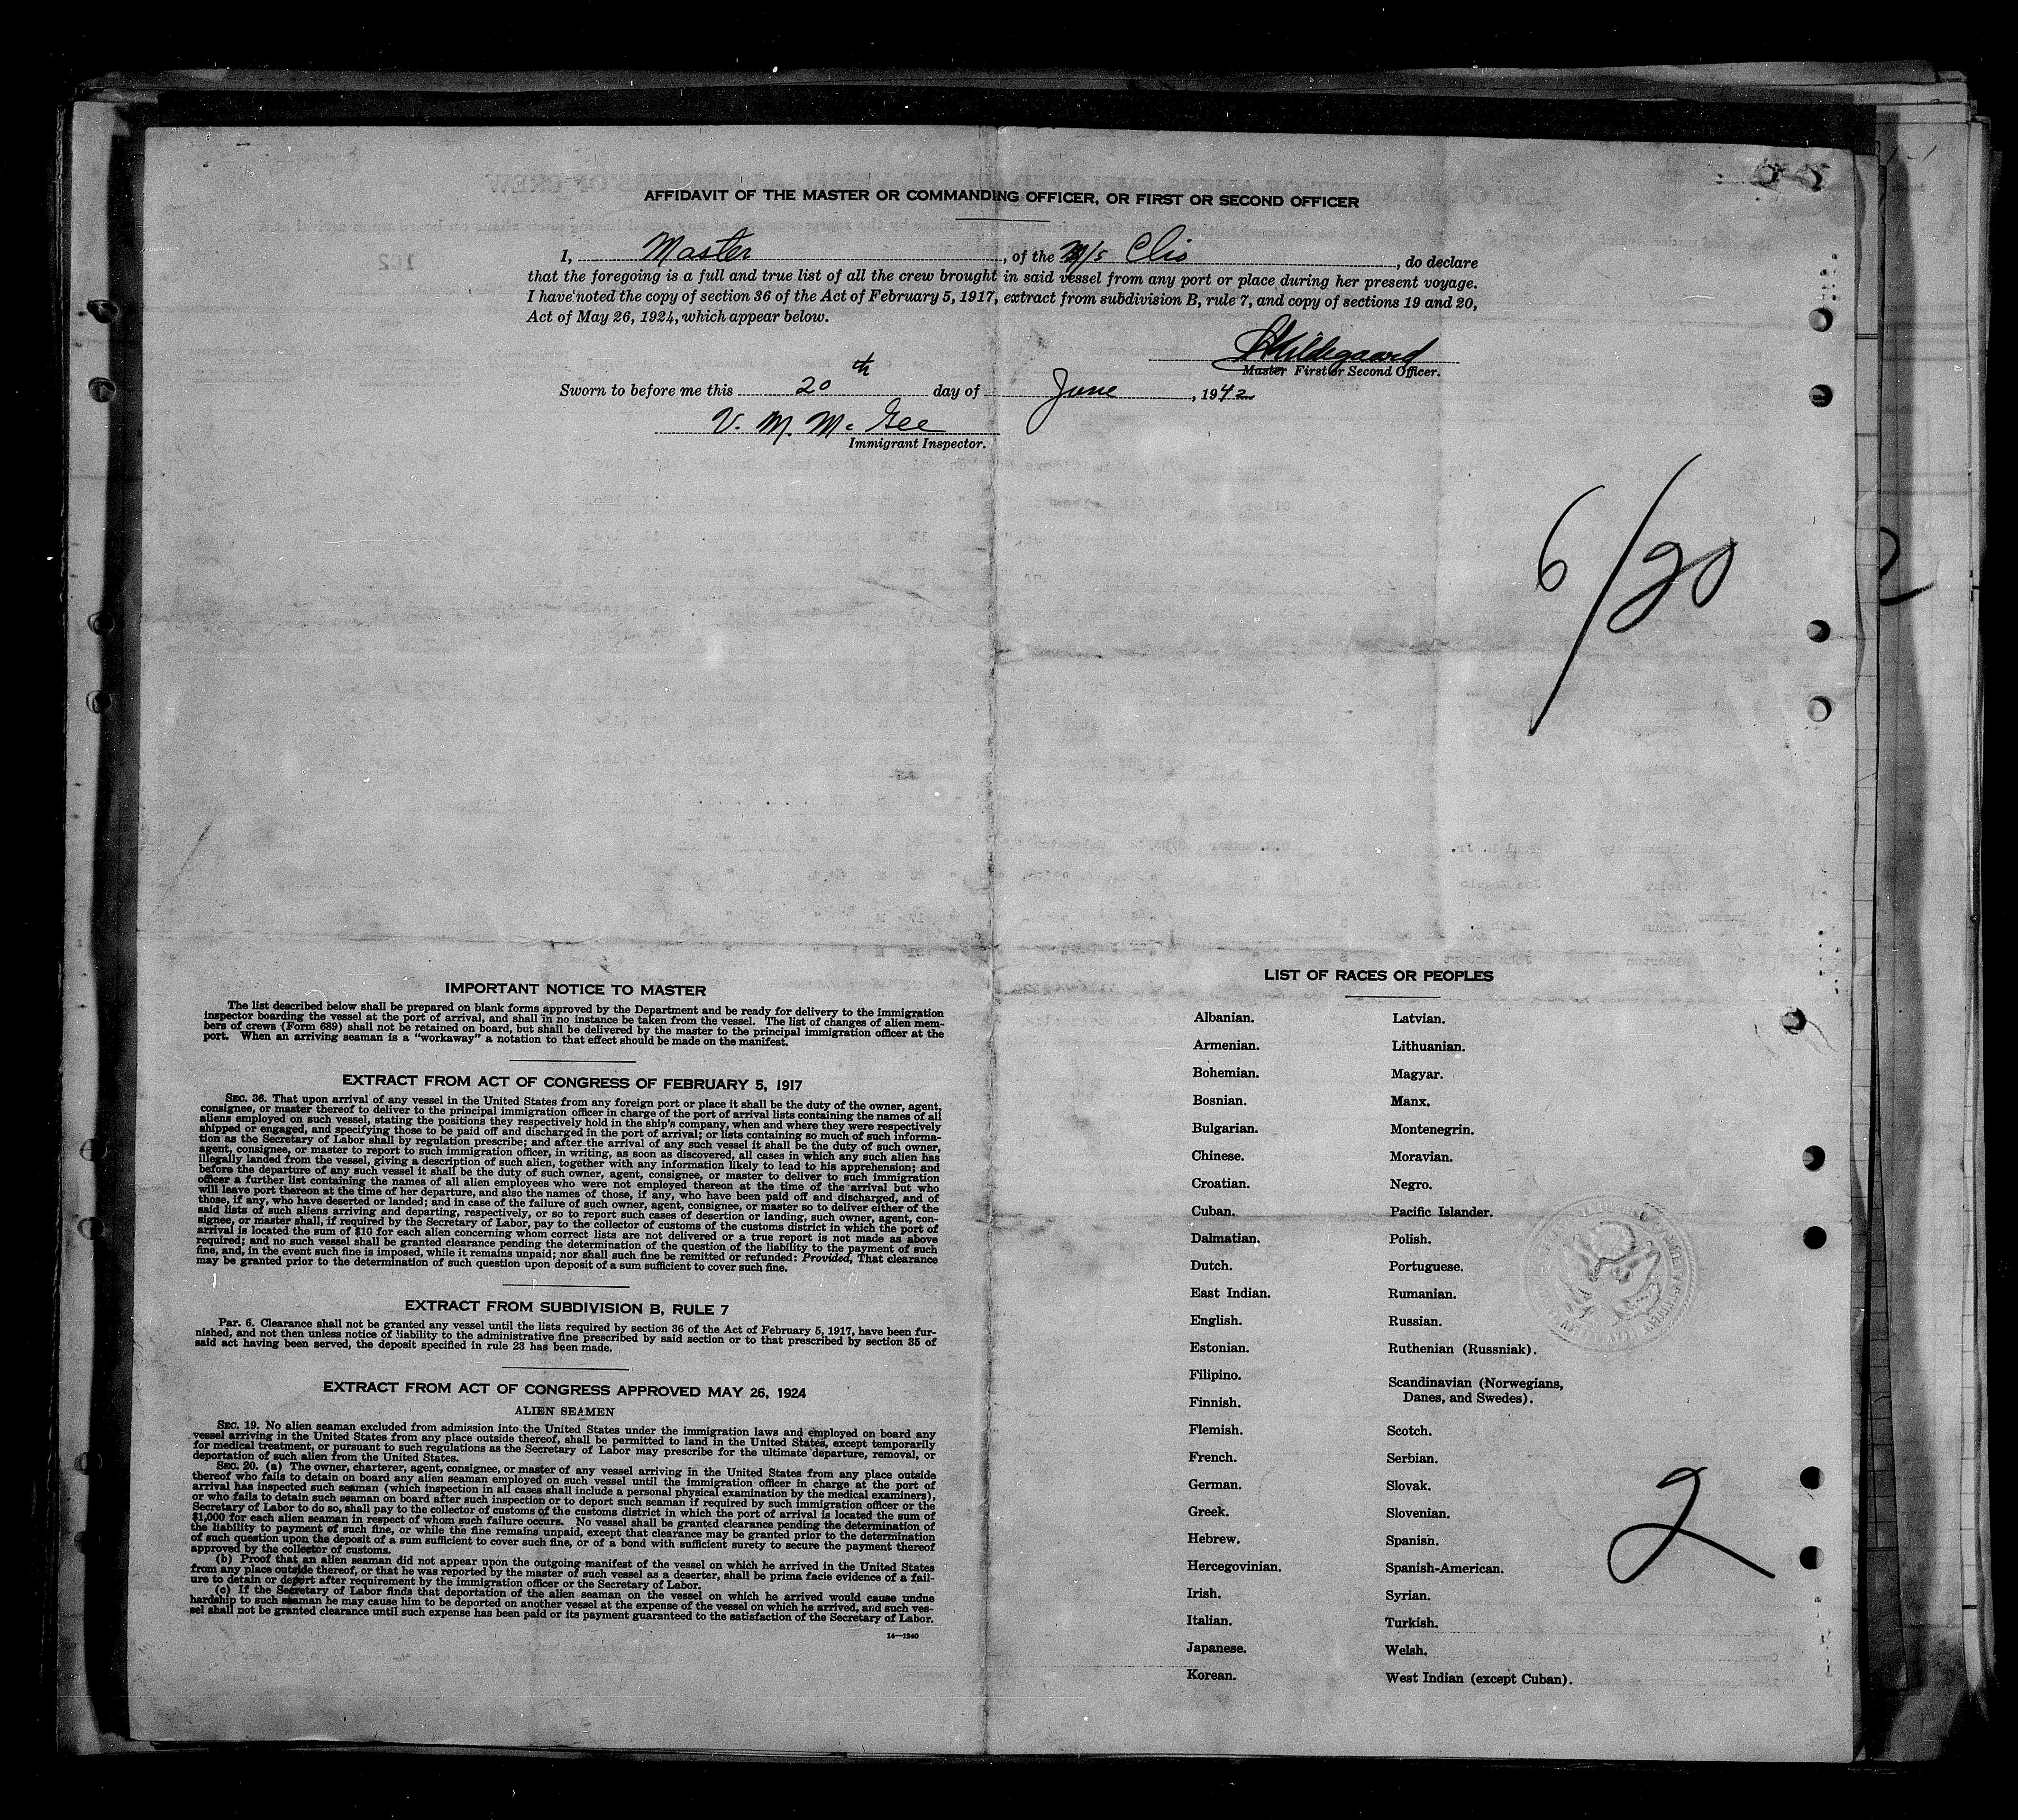 AFFIDAVIT OF THE MASTER OR COMMANDING OFFICER, OR FIRST OR SECOND OFFICER
I, Master, of the M/S Clio, do declare
that the foregoing is a full and true list of all the crew brought in said vessel from any port or place during her present voyage.
I have noted the copy of section 36 of the Act of February 5, 1917, extract from subdivision B, rule 7, and copy of sections 19 and 20,
Act of May 26, 1924, which appear below.
Hildegaard
Master First or Second Officer.
Sworn to before me this 20th day of June, 1942
V. M. McGee
Immigrant Inspector.
6/20
IMPORTANT NOTICE TO MASTER
The list described below shall be prepared on blank forms approved by the Department and be ready for delivery to the immigration
inspector boarding the vessel at the port of arrival, and shall in no instance be taken from the vessel. The list of changes of alien mem-
bers of crews (Form 689) shall not be retained on board, but shall be delivered by the master to the principal immigration officer at the
port. When an arriving seaman is a "workaway" a notation to that effect should be made on the manifest.
EXTRACT FROM ACT OF CONGRESS OF FEBRUARY 5, 1917
SEC. 36. That upon arrival of any vessel in the United States from any foreign port or place it shall be the duty of the owner, agent,
consignee, or master thereof to deliver to the principal immigration officer in charge of the port of arrival lists containing the names of all
aliens employed on such vessel, stating the positions they respectively hold in the ship's company, when and where they were respectively
shipped or engaged, and specifying those to be paid off and discharged in the port of arrival; or lists containing so much of such informa-
tion as the Secretary of Labor shall by regulation prescribe; and after the arrival of any such vessel it shall be the duty of such owner,
agent, consignee, or master to report to such immigration officer, in writing, as soon as discovered, all cases in which any such alien has
illegally landed from the vessel, giving a description of such alien, together with any information likely to lead to his apprehension; and
before the departure of any such vessel it shall be the duty of such owner, agent, consignee, or master to deliver to such immigration
officer a further list containing the names of all alien employees who were not employed thereon at the time of the arrival but who
will leave port thereon at the time of her departure, and also the names of those, if any, who have been paid off and discharged, and of
those, if any, who have deserted or landed; and in case of the failure of such owner, agent, consignee, or master so to deliver either of the
said lists of such aliens arriving and departing, respectively, or so to report such cases of desertion or landing, such owner, agent, con-
signee, or master shall, if required by the Secretary of Labor, pay to the collector of customs of the customs district in which the port of
arrival is located the sum of $10 for each alien concerning whom correct lists are not delivered or a true report is not made as above
required; and no such vessel shall be granted clearance pending the determination of the question of the liability to the payment of such
fine, and, in the event such fine is imposed, while it remains unpaid; nor shall such fine be remitted or refunded: Provided, That clearance
may be granted prior to the determination of such question upon deposit of a sum sufficient to cover such fine.
EXTRACT FROM SUBDIVISION B, RULE 7
Par. 6. Clearance shall not be granted any vessel until the lists required by section 36 of the Act of February 5, 1917, have been fur-
nished, and not then unless notice of liability to the administrative fine prescribed by said section or to that prescribed by section 35 of
said act having been served, the deposit specified in rule 23 has been made.
EXTRACT FROM ACT OF CONGRESS APPROVED MAY 26, 1924
ALIEN SEAMEN
SEC. 19. No alien seaman excluded from admission into the United States under the immigration laws and employed on board any
vessel arriving in the United States from any place outside thereof, shall be permitted to land in the United States, except temporarily
for medical treatment, or pursuant to such regulations as the Secretary of Labor may prescribe for the ultimate departure, removal, or
deportation of such alien from the United States.
SEC. 20. (a) The owner, charterer, agent, consignee, or master of any vessel arriving in the United States from any place outside
thereof who fails to detain on board any alien seaman employed on such vessel until the immigration officer in charge at the port of
arrival has inspected such seaman (which inspection in all cases shall include a personal physical examination by the medical examiners),
or who fails to detain such seaman on board after such inspection or to deport such seaman if required by such immigration officer or the
Secretary of Labor to do so, shall pay to the collector of customs of the customs district in which the port of arrival is located the sum of
$1,000 for each alien seaman in respect of whom such failure occurs. No vessel shall be granted clearance pending the determination of
the liability to payment of such fine, or while the fine remains unpaid, except that clearance may be granted prior to the determination
of such question upon the deposit of a sum sufficient to cover such fine, or of a bond with sufficient surety to secure the payment thereof
approved by the collector of customs.
(b) Proof that an alien seaman did not appear upon the outgoing manifest of the vessel on which he arrived in the United States
from any place outside thereof, or that he was reported by the master of such vessel as a deserter, shall be prima facie evidence of a fail-
ure to detain or deport after requirement by the immigration officer or the Secretary of Labor.
(c) If the Secretary of Labor finds that deportation of the alien seaman on the vessel on which he arrived would cause undue
hardship to such seaman he may cause him to be deported on another vessel at the expense of the vessel on which he arrived, and such ves-
sel shall not be granted clearance until such expense has been paid or its payment guaranteed to the satisfaction of the Secretary of Labor.
14—1240
LIST OF RACES OR PEOPLES
Albanian.
Armenian.
Bohemian.
Bosnian.
Bulgarian.
Chinese.
Croatian.
Cuban.
Dalmatian.
Dutch.
East Indian.
English.
Estonian.
Filipino.
Finnish.
Flemish.
French.
German.
Greek.
Hebrew.
Hercegovinian.
Irish.
Italian.
Japanese.
Korean.
Latvian.
Lithuanian.
Magyar.
Manx.
Montenegrin.
Moravian.
Negro.
Pacific Islander.
Polish.
Portuguese.
Rumanian.
Russian.
Ruthenian (Russniak).
Scandinavian (Norwegians,
Danes, and Swedes).
Scotch.
Serbian.
Slovak.
Slovenian.
Spanish.
Spanish-American.
Syrian.
Turkish.
Welsh.
West Indian (except Cuban).
2